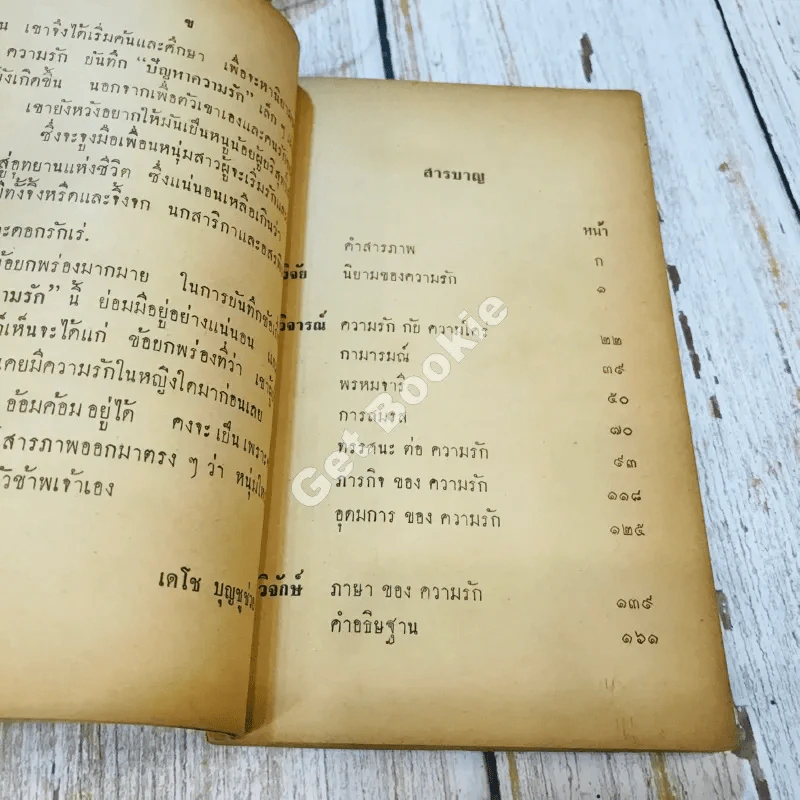 ข
น เขาจึงได้เริ่มค้นและศึกษา เพื่อจะหานิยาม
ความรัก บันทึก “ปัญหาความรัก” เล็ก ๆ
ยังเกิดขึ้น นอกจากเพื่อตัวเขาเองและคนรัก
เขายังหวังอยากให้มันเป็นหนูน้อยผู้
ซึ่งจะจูงมือเพื่อนหนุ่มสาวผู้จะเริ่มรัก
สู่อุทยานแห่งชีวิต ซึ่งแน่นอนเหลือเกินว่า
มีทั้งจิ้งหรีดและจิ้งจก นกสาริกาและ
ะดอกรักเร่.
ข้อยกพร่องมากมาย ในการบันทึก
ามรัก” นี้ ย่อมมีอยู่อย่างแน่นอน
ก็เห็นจะได้แก่ ข้อยกพร่องที่ว่า
เคยมีความรักในหญิงใดมาก่อนเลย
อ้อมค้อมอยู่ได้ คงจะเป็นเพราะ
สารภาพออกมาตรง ๆ ว่า หนุ่ม
ตัวข้าพเจ้าเอง
เดโช บุญชูช่วย
สารบาญ
หน้า
คำสารภาพ ก
วิจัย นิยามของความรัก ๑
วิจารณ์ ความรัก กับ ความใคร่ ๒๒
กามารมณ์ ๓๙
พรหมจารี ๕๐
การสมรส ๗๐
ทรรศนะ ต่อ ความรัก ๙๓
ภารกิจ ของ ความรัก ๑๑๘
อุดมการ ของ ความรัก ๑๒๕
วิจักษ์ ภาษา ของ ความรัก ๑๓๙
คำอธิษฐาน ๑๖๑
Get Bookie